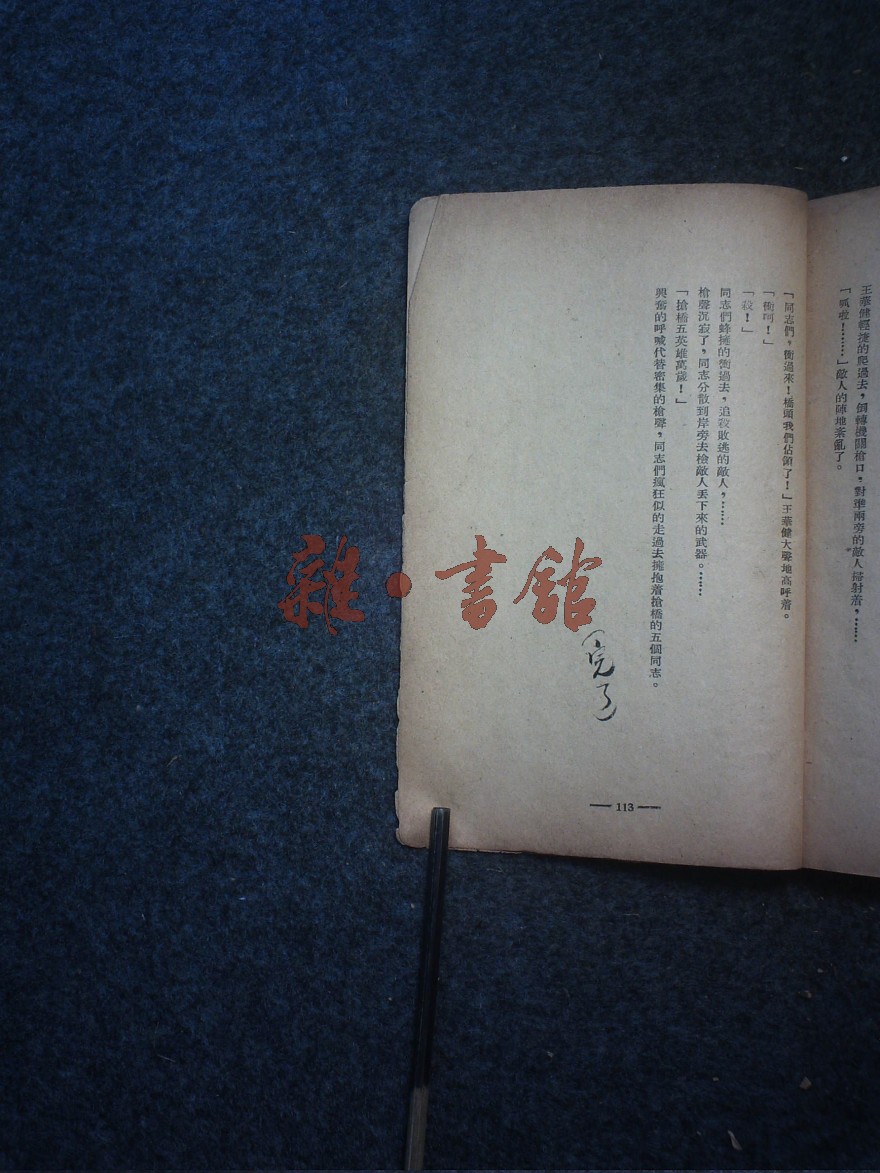 王華健輕捷的爬過去,倒轉機關槍口,對準兩旁的敵人掃射着,……
「呱啦!……」敵人的陣地紊亂了。
「同志們,衝過來!橋頭我們佔領了!」王華健大聲地高呼着。
「衝呵!」
「殺!」
同志們蜂擁的衝過去,追殺敗逃的敵人,……
槍聲沉寂了,同志分散到岸旁去檢敵人丟下來的武器。……
「搶橋五英雄萬歲!」
興奮的呼喊代替密集的槍聲,同志們瘋狂似的走過去擁抱着搶橋的五個同志。
(完了)
— 113 —
雜·書館